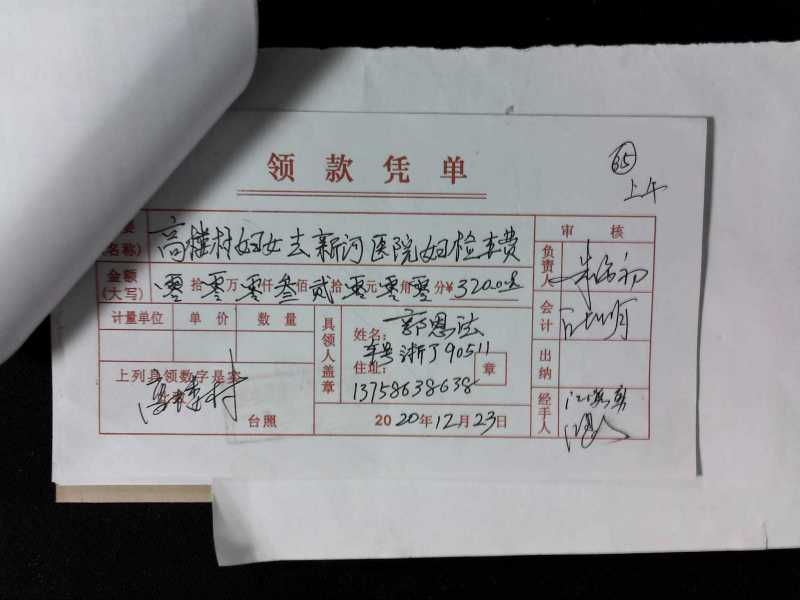 领款凭单
65
上午
要
(名称)
高桂村妇女去新河医院妇检车费
审核
金额
(大写)
零拾零万零仟叁佰贰拾零元零角零分¥320.00
负责人
会计
计量单位 单价 数量
具领人盖章
姓名:郭恩法
车号浙J90511
住址:
章
13758638638
出纳
上列具领数字是实
台照
2020年12月23日
经手人